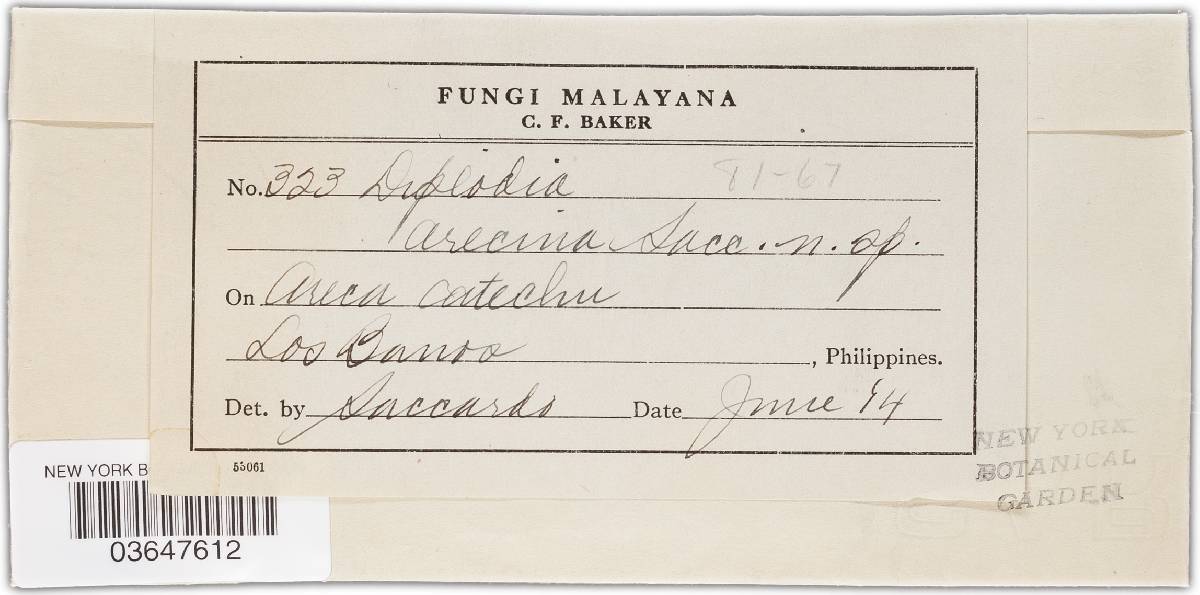 FUNGI MALAYANA
C. F. BAKER
No. 323 Diplodia 81-67
arecina Sacc. n. sp.
On Areca catechu
Los Banos, Philippines.
Det. by Saccardo Date June '14
55061
NEW YORK B
03647612
NEW YORK
BOTANICAL
GARDEN